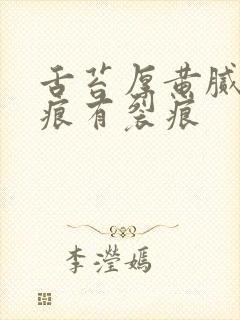 舌苔厚黄腻
痕有裂痕
李滢嫣